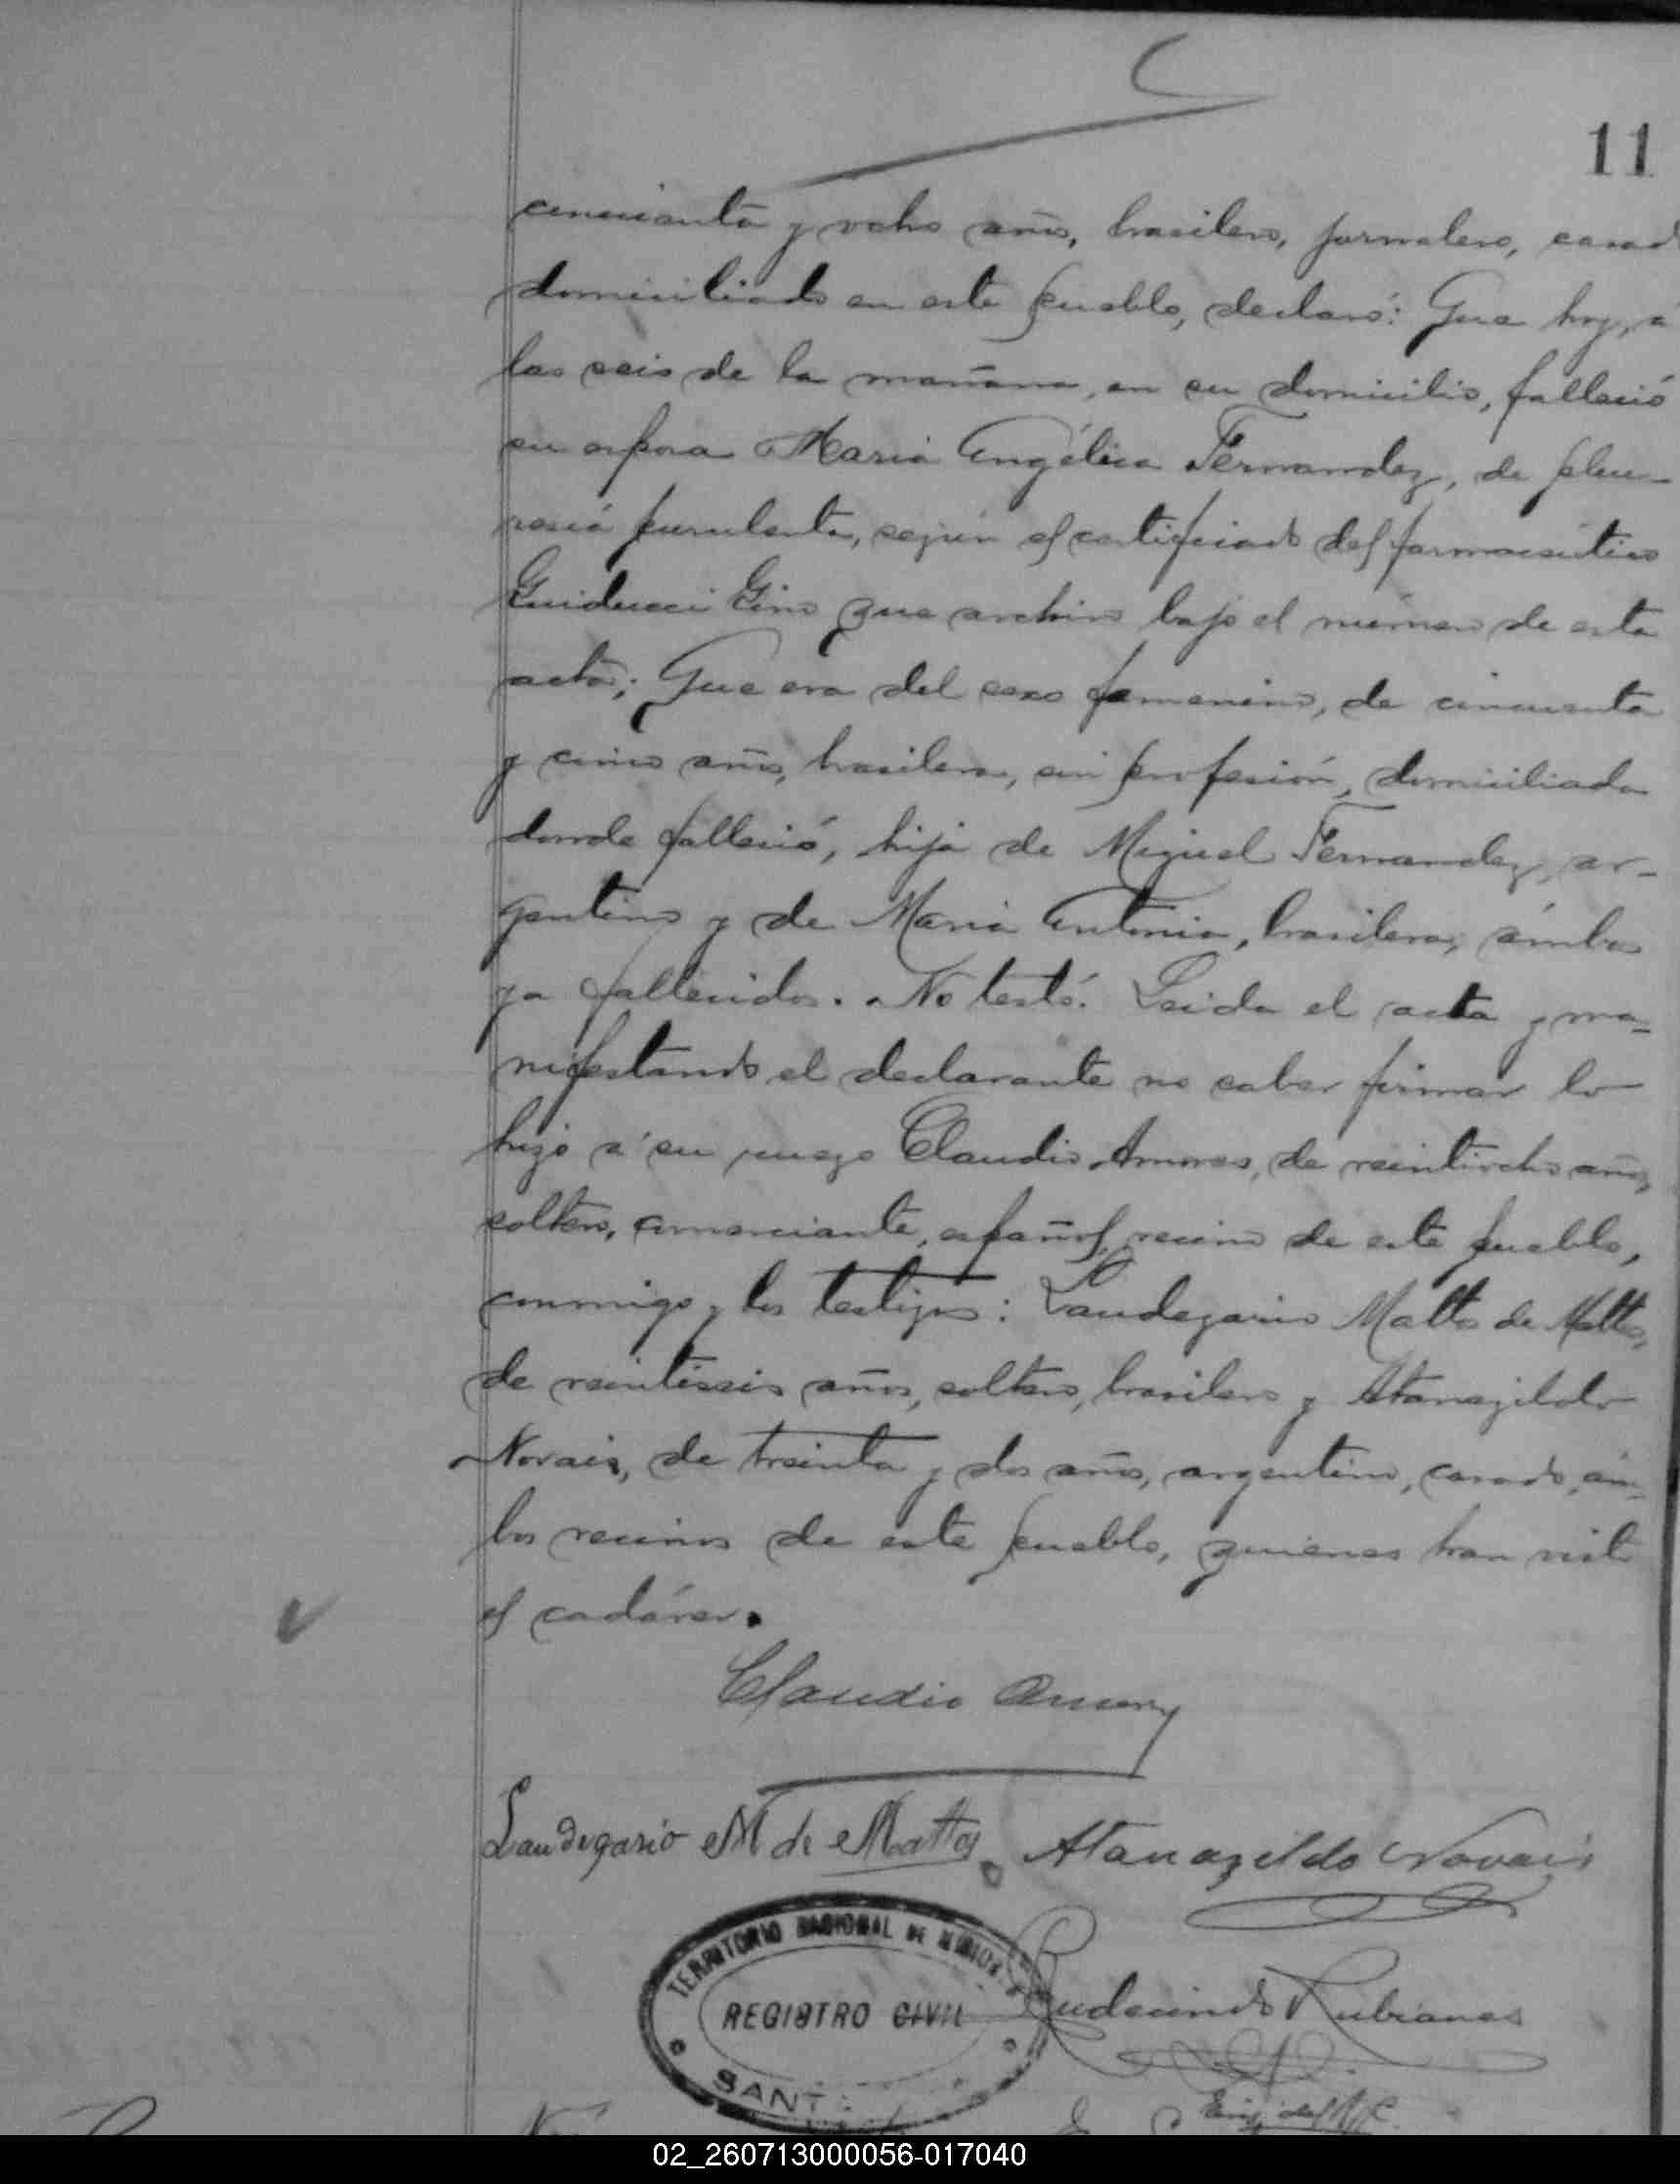 11
cincuenta y ocho años, brasilero, jornalero, casad
domiciliado en este pueblo, declaró: Que hoy, a
las seis de la mañana, en su domicilio, falleció
su esposa Maria Angélica Fernandez, de pleu-
resia purulenta, según el certificado del farmacéutico
Guiducci Gino que archivo bajo el número de esta
acta; Que era del sexo femenino, de cincuenta
y cinco años, brasilera, sin profesión, domiciliada
donde falleció, hija de Miguel Fernandez, ar-
gentino y de Maria Antonia, brasilera, ámbos
ya fallecidos. No testó. Leida el acta y ma-
nifestando el declarante no saber firmar lo
hizo á su ruego Claudio Amores, de veintiocho años,
soltero, comerciante, español, vecino de este pueblo,
conmigo y los testigos: Laudegario Matto de Mattos,
de veintiseis años, soltero, brasilero y Atanagildo
Novais, de treinta y dos años, argentino, casado, ám-
bos vecinos de este pueblo, quienes han visto
el cadáver.
Claudio
Laudegario M de Mattos Atanagildo Novais
TERRITORIO NACIONAL DE MISIONES
REGISTRO CIVIL
SANT
Rudecindo Rubianes
Enc. del R.C.
02_260713000056-017040